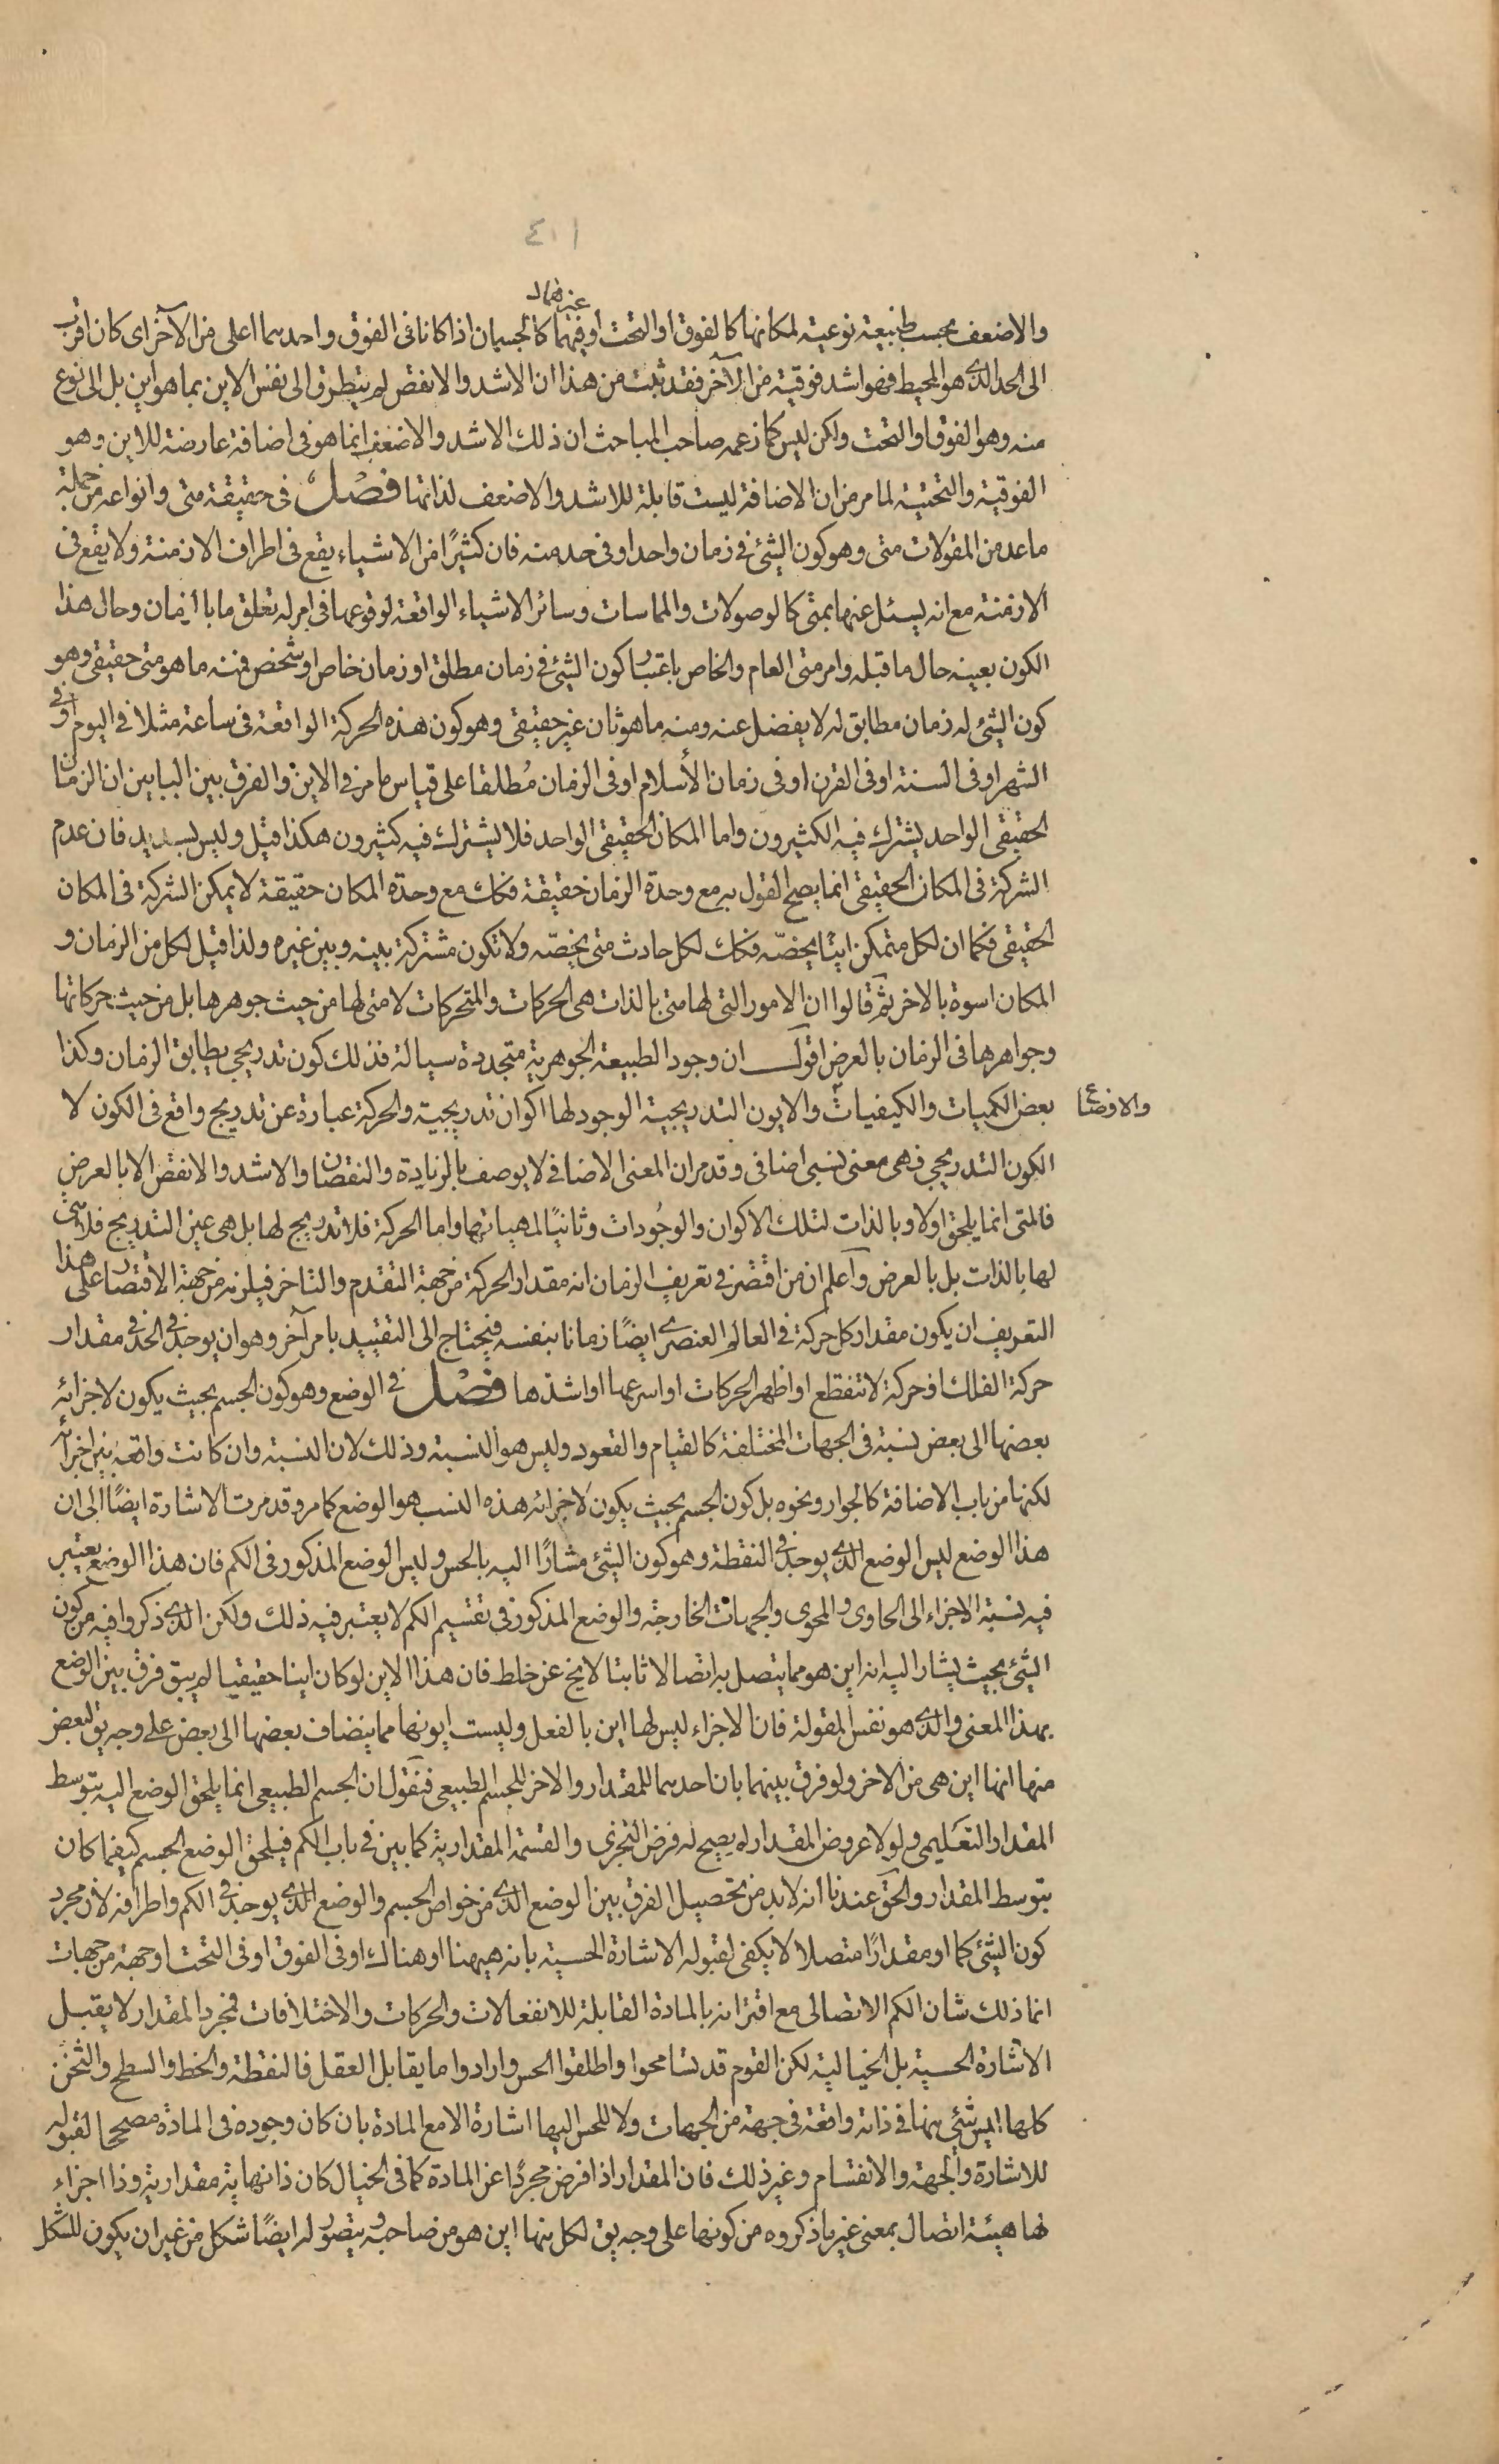 ٤١١
غيرهما
والاضعف بحسب طبيعة نوعية لمكانها كالفوق او التحت او فيهما كالجسمان اذا كانا فى الفوق واحدهما اعلى من الآخر اى كان اقرب
الى الحد الذى هو المحيط فهو اشد فوقية من الآخر فقد ثبت من هذا ان الاشد والانقص لم يتطرق الى نفس الاين بما هو اين بل الى نوع
منه وهو الفوق او التحت ولكن ليس كما زعمه صاحب المباحث ان ذلك الاشد والاضعف انما هو فى اضافة عارضة للاين وهو
الفوقية والتحتية لما مر من ان الاضافة ليست قابلة للاشد والاضعف لذاتها فصل فى حقيقة متى وانواعه من جملة
ما عد من المقولات متى وهو كون الشئ فى زمان واحد او فى حد منه فان كثيرًا من الاشياء يقع فى اطراف الازمنة ولا يقع فى
الازمنة مع انه يسئل عنها بمتى كالوصولات والمماسات وسائر الاشياء الواقعة لوقوعها فى امر له تعلق ما بالزمان وحال هذا
الكون بعينه حال ما قبله وامر متى العام والخاص باعتبار كون الشئ فى زمان مطلق او زمان خاص او شخص فمنه ما هو متى حقيقى وهو
كون الشئ له زمان مطابق له لا يفضل عنه ومنه ما هو ثان غير حقيقى وهو كون هذه الحركة الواقعة فى ساعة مثلا فى اليوم او فى
الشهر او فى السنة او فى القرن او فى زمان الأسلام او فى الزمان مُطلقا على قياس ما مر فى الاين والفرق بين البابين ان الزمان
الحقيقى الواحد يشترك فيه الكثيرون واما المكان الحقيقى الواحد فلا يشترك فيه كثيرون هكذا قيل وليس بسديد فان عدم
الشركة فى المكان الحقيقى انما يصح القول به مع وحدة الزمان حقيقة فكك مع وحدة المكان حقيقة لا يمكن الشركة فى المكان
الحقيقى فكما ان لكل متمكن اينًا يخصّه فكك لكل حادث متى يخصّه ولا تكون مشتركة بينه وبين غيره ولذا قيل لكل من الزمان و
المكان اسوة بالاخر ثم قالوا ان الامور التى لها متى بالذات هى الحركات والمتحركات لا متى لها من حيث جوهرها بل من حيث حركاتها
وجواهرها فى الزمان بالعرض اقول ان وجود الطبيعة الجوهرية متجددة سيالة فذلك كون تدريجى يطابق الزمان وكذا
بعض الكميات والكيفيات والايون التدريجية الوجود لها اكوان تدريجية والحركة عبارة عن تدريج واقع فى الكون لا
والاوضاع
الكون التدريجى فهى معنى نسبى اضافى وقد مر ان المعنى الاضافى لا يوصف بالزيادة والنقصان والاشد والانقص الا بالعرض
فالمتى انما يلحق اولا وبالذات لتلك الاكوان والوجُودات وثانيًا لمهياتها واما الحركة فلا تدريج لها بل هى عين التدريج فلا متى
لها بالذات بل بالعرض وآعلم ان من اقتصر فى تعريف الزمان انه مقدار الحركة من جهة التقدم والتاخر فيلزمه من جهة الاقتصار على هذا
التعريف ان يكون مقدار كل حركة فى العالم العنصرى ايضًا زمانا بنفسه فيحتاج الى التقييد بامر آخر وهو ان يوجد فى الحد فى مقدار
حركة الفلك او حركة لا تنقطع او اظهر الحركات او اسرعها او اشدها فصل فى الوضع وهو كون الجسم بحيث يكون لاجزائه
بعضها الى بعض نسبة فى الجهات المختلفة كالقيام والقعود وليس هو النسبة وذلك لان النسبة وان كانت واقعة بين اجزائه
لكنها من باب الاضافة كالجوار ونحوه بل كون الجسم بحيث يكون لاجزائه هذه النسب هو الوضع كما مر وقد مرت الاشارة ايضًا الى ان
هذا الوضع ليس الوضع الذى يوجد فى النقطة وهو كون الشئ مشارًا اليه بالحس وليس الوضع المذكور فى الكم فان هذا الوضع يعتبر
فيه نسبة الاجزاء الى الحاوى والمحوى والجهات الخارجة والوضع المذكور فى تقسيم الكم لا يعتبر فيه ذلك ولكن الذى ذكروا فيه من كون
الشئ بحيث يشار اليه انه اين هو مما يتصل به اتصالا ثابتا لا يخ عن خلط فان هذا الاين لو كان اينا حقيقيا لم يبق فرق بين الوضع
بهذا المعنى والذى هو نفس المقولة فان الاجزاء ليس لها اين بالفعل وليست ايونها مما ينضاف بعضها الى بعض على وجه يق لبعض
منها انها اين هى من الاخر ولو فرق بينهما بان احدهما للمقدار والاخر للجسم الطبيعى فنقول ان الجسم الطبيعى انما يلحق الوضع اليه بتوسط
المقدار التعليمى ولولا عروض المقدار له يصح له فرض التجزى والقسمة المقدارية كما بين فى باب الكم فيلحق الوضع الجسم كيفما كان
بتوسط المقدار والحق عندنا انه لا بد من تحصيل الفرق بين الوضع الذى من خواص الجسم والوضع الذى يوجد فى الكم واطرافه لان مجرد
كون الشئ كما او مقدارًا متصلا لا يكفى لقبوله الاشارة الحسية بانه هيهنا او هناك او فى الفوق او فى التحت او جهة من جهات
انما ذلك شان الكم الاتصالى مع اقترانه بالمادة القابلة للانفعالات والحركات والاختلافات فمجرد المقدار لا يقبل
الاشارة الحسية بل الخيالية لكن القوم قد تسامحوا واطلقوا الحس وارادوا ما يقابل العقل فالنقطة والخط والسطح والثخن
كلها ليس شئ منها فى ذاته واقعة فى جهة من الجهات ولا للحس اليها اشارة الا مع المادة بان كان وجوده فى المادة مصححا لقبوله
للاشارة والجهة والانقسام وغير ذلك فان المقدار اذا فرض مجردًا عن المادة كما فى الخيال كان ذا نهاية مقدارية وذا اجزاء
لها هيئة اتصال بمعنى غير ما ذكروه من كونها على وجه يق لكل منها اين هو من صاحبه ويتصور له ايضًا شكل من غير ان يكون للشكل